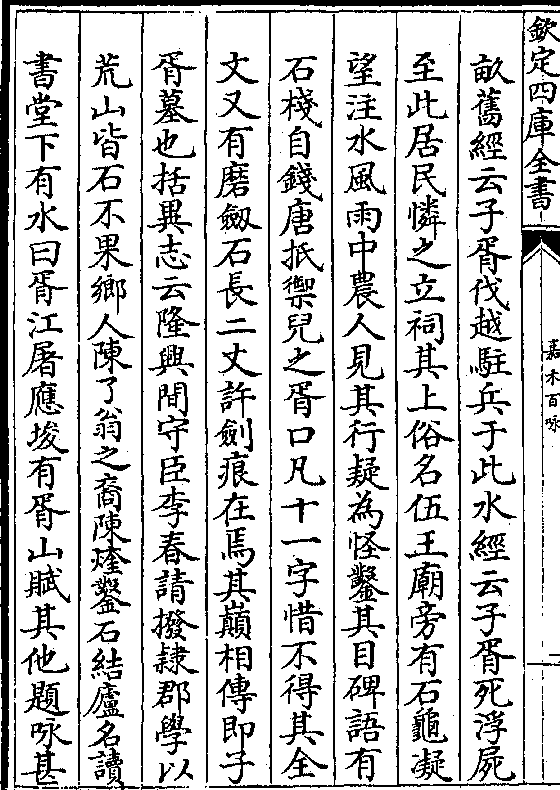 欽定四庫全書
嘉木百咏
畝舊經云子胥伐越駐兵于此水經云子胥死浮屍
至此居民憐之立祠其上俗名伍王廟旁有石龜凝
望注水風雨中農人見其行疑為怪鑿其目碑語有
石棧自錢唐抵禦兒之胥口凡十一字惜不得其全
文又有磨劔石長二丈許劍痕在焉其巔相傳即子
胥墓也括異志云隆興間守臣李春請撥隷郡學以
荒山皆石不果鄉人陳了翁之裔陳煃鑿石結廬名讀
書堂下有水曰胥江屠應埈有胥山賦其他題咏甚